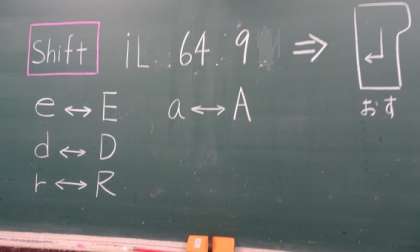 Shift iL..64.:9. ⇒ ↵
おす
e ↔ E a ↔ A
d ↔ D
r ↔ R